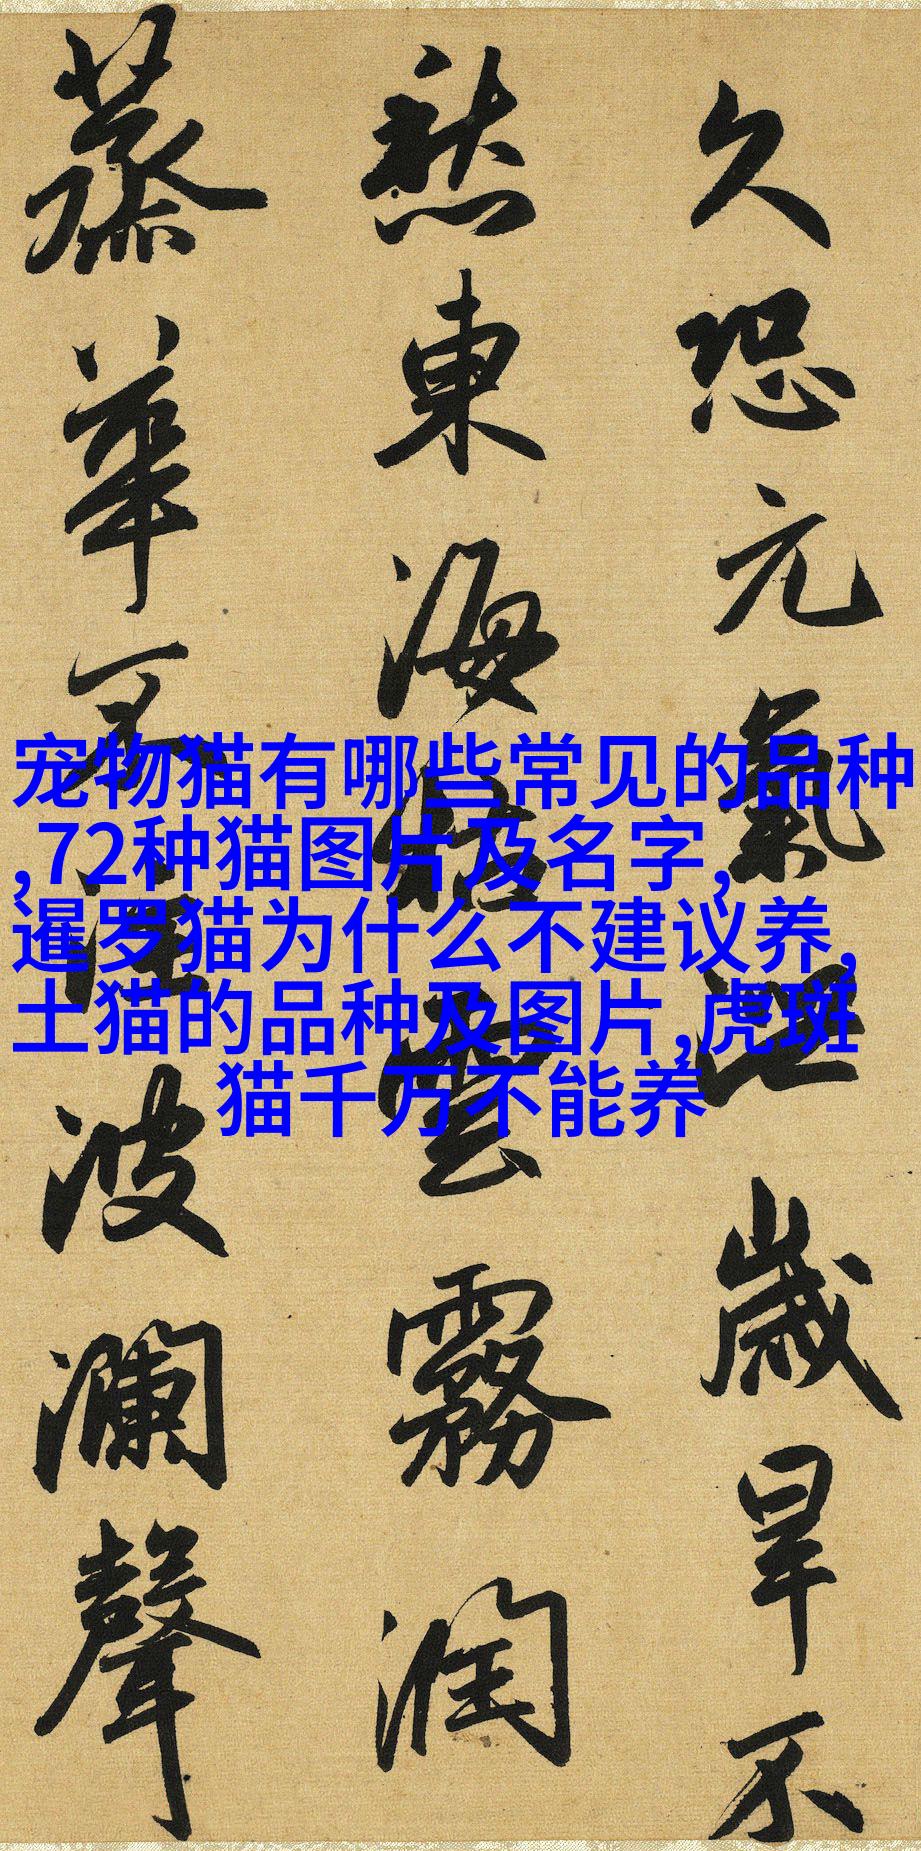 久恐元氣泄歲旱不
愁東海枯雲霧潤
蒸華不注波瀾聲
宠物猫有哪些常见的品种
,72种猫图片及名字,
暹罗猫为什么不建议养,
土猫的品种及图片,虎斑
猫千万不能养